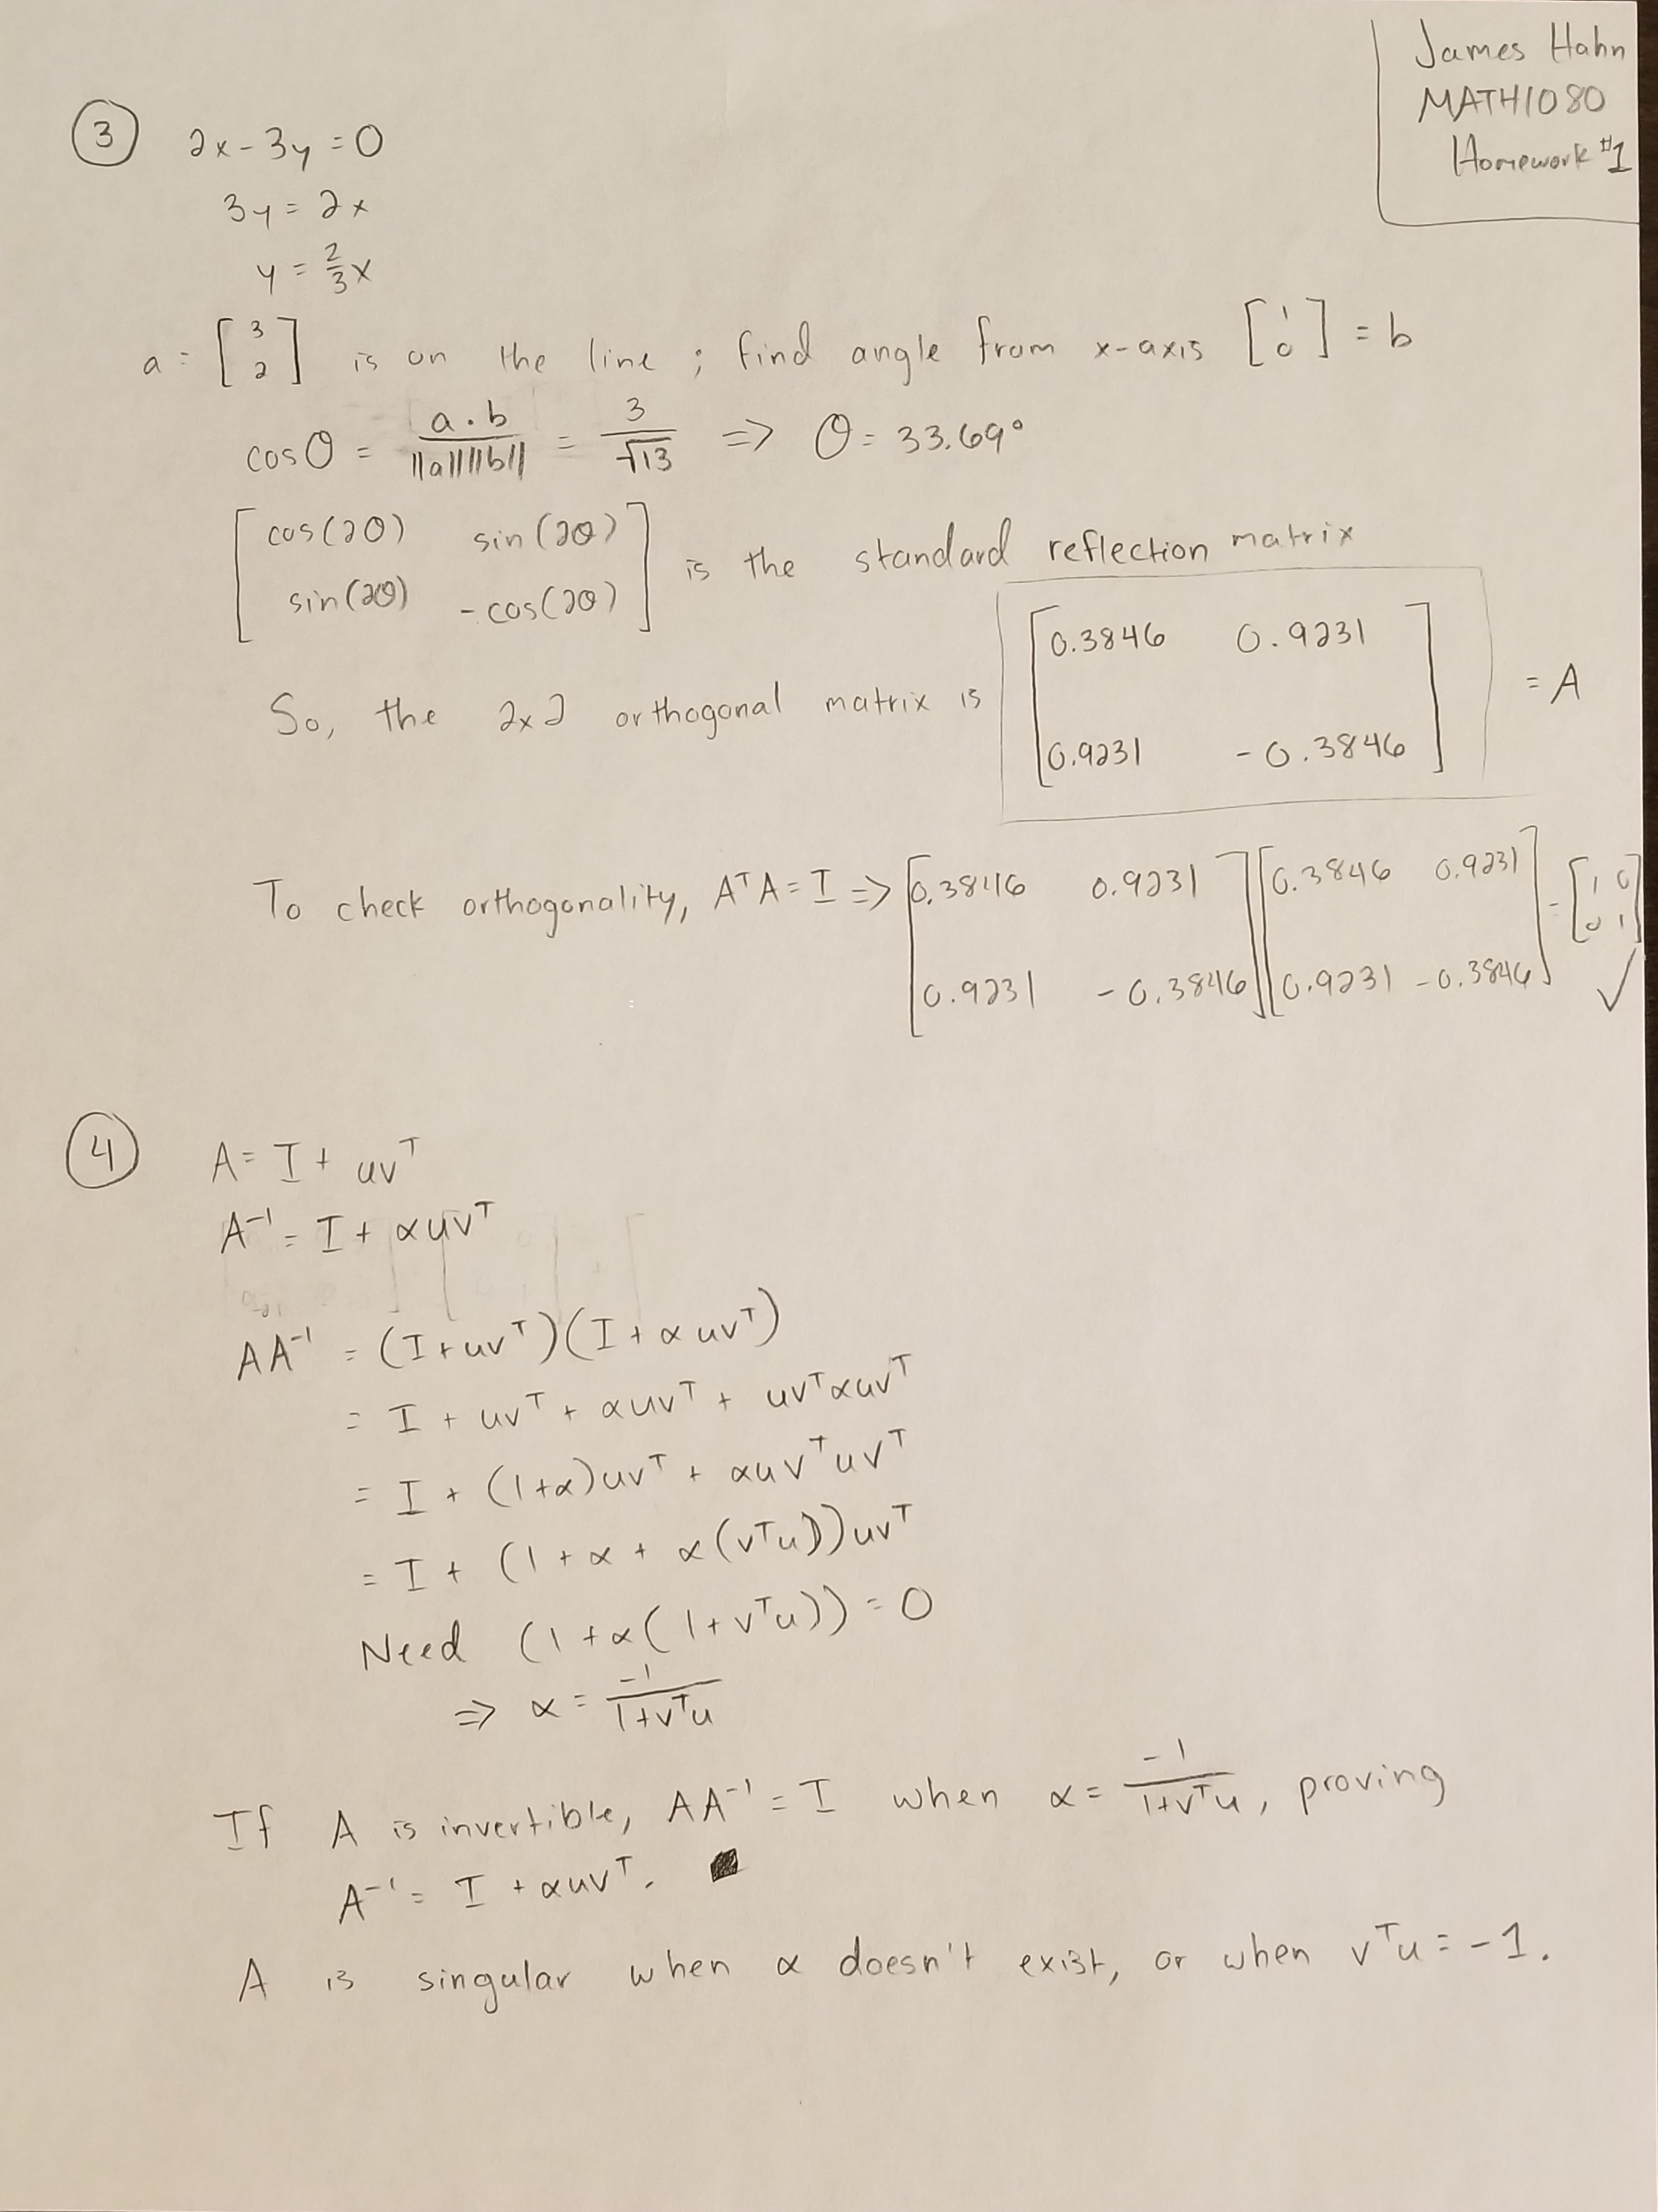 James Hahn
MATH1080
Homework #1
③ 2x - 3y = 0
3y = 2x
y = 2/3 x
a = [3; 2] is on the line ; find angle from x-axis [1; 0] = b
cosθ = a·b / ||a||||b|| = 3/√13 => θ = 33.69°
[cos(2θ) sin(2θ); sin(2θ) -cos(2θ)] is the standard reflection matrix
So, the 2x2 orthogonal matrix is [0.3846 0.9231; 0.9231 -0.3846] = A
To check orthogonality, AᵀA = I => [0.3846 0.9231; 0.9231 -0.3846][0.3846 0.9231; 0.9231 -0.3846] = [1 0; 0 1] ✓
④ A = I + uvᵀ
A⁻¹ = I + αuvᵀ
AA⁻¹ = (I + uvᵀ)(I + αuvᵀ)
= I + uvᵀ + αuvᵀ + uvᵀαuvᵀ
= I + (1+α)uvᵀ + αuvᵀuvᵀ
= I + (1 + α + α(vᵀu))uvᵀ
Need (1 + α(1 + vᵀu)) = 0
=> α = -1/(1+vᵀu)
If A is invertible, AA⁻¹ = I when α = -1/(1+vᵀu), proving
A⁻¹ = I + αuvᵀ. ■
A is singular when α doesn't exist, or when vᵀu = -1.